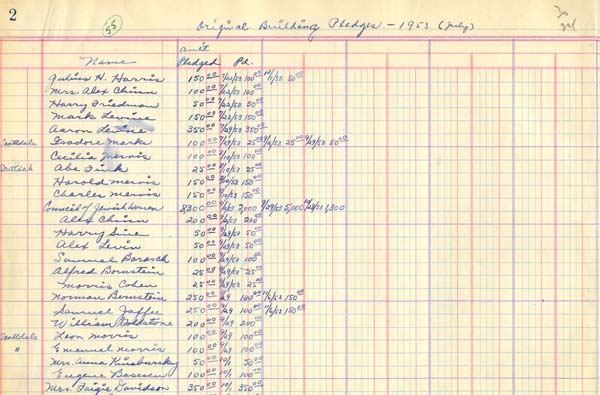 2
55 Original Building Pledges - 1953 (July)
Amt
Name Pledged Pd.
Julius H. Harris 150 00 7/22/53 100 00 50 00
Mrs. Alex Chinn 100 00 7/22/53 100 00
Harry Friedman 50 00 7/22/53 50 00
Mark Levine 150 00 7/22/53 150 00
Aaron Levine 350 00 7/29/53 350 00
Scottdale Isadore Marks 100 00 7/29/53 25 00 25 00 50 00
Cecilia Mervis 100 00 100 00
Scottdale Abe Fink 25 00 25 00
Harold Mervis 150 00 150 00
Charles Mervis 150 00 150 00
Council of Jewish Women 8,300 00 2,000 9/29/53 5,000 1,300
Alex Chinn 200 00 200 00
Harry Sine 50 00 9/29/53 50 00
Alex Levin 50 00 9/29/53 50 00
Samuel Barasch 100 00 9/29/53 100 00
Alfred Bornstein 25 00 9/29/53 25 00
Morris Cohen 25 00 9/29/53 25 00
Norman Bernstein 250 00 9/29 100 00 150 00
Samuel Jaffe 250 00 9/29 100 00 150 00
William Goldstone 200 00 9/29 200 00
Scottdale Leon Morris 100 00 100 00
" Emanuel Morris 100 00 100 00
Mrs. Anna Kinsbursky 50 00 10/1 50 00
Eugene Basescu 100 00 10/1 100 00
Mrs. Faigie Davidson 350 00 10/1 350 00